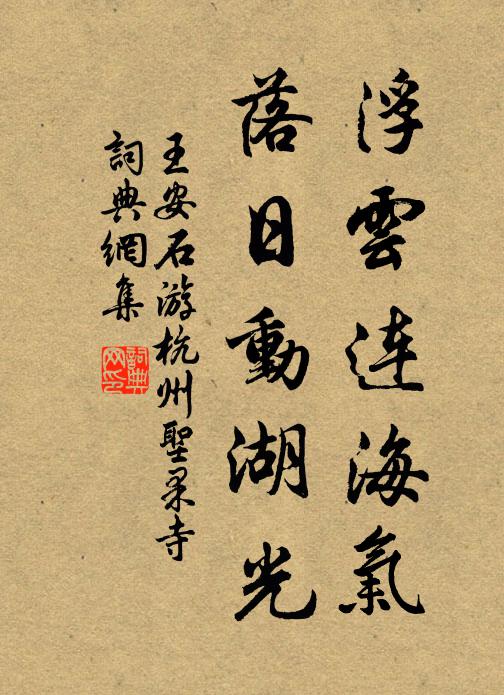 浮雲連海氣
落日動湖光
王安石游杭州聖果寺
詞典網集
詞典
网印